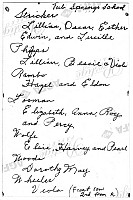 Tub Springs School
Stricker
Lillian, Oscar, Esther
Edwin, and Lucille
Phipps
Lillian, Bessie & Viol
Rambo
Hazel and Eldon
Looman
Elizabeth, Anna, Roy,
and Percy
Wolfe
Elsie, Harvey and Pearl
Woods
Dorothy May
Wheeler
Viola (front row
2nd from R